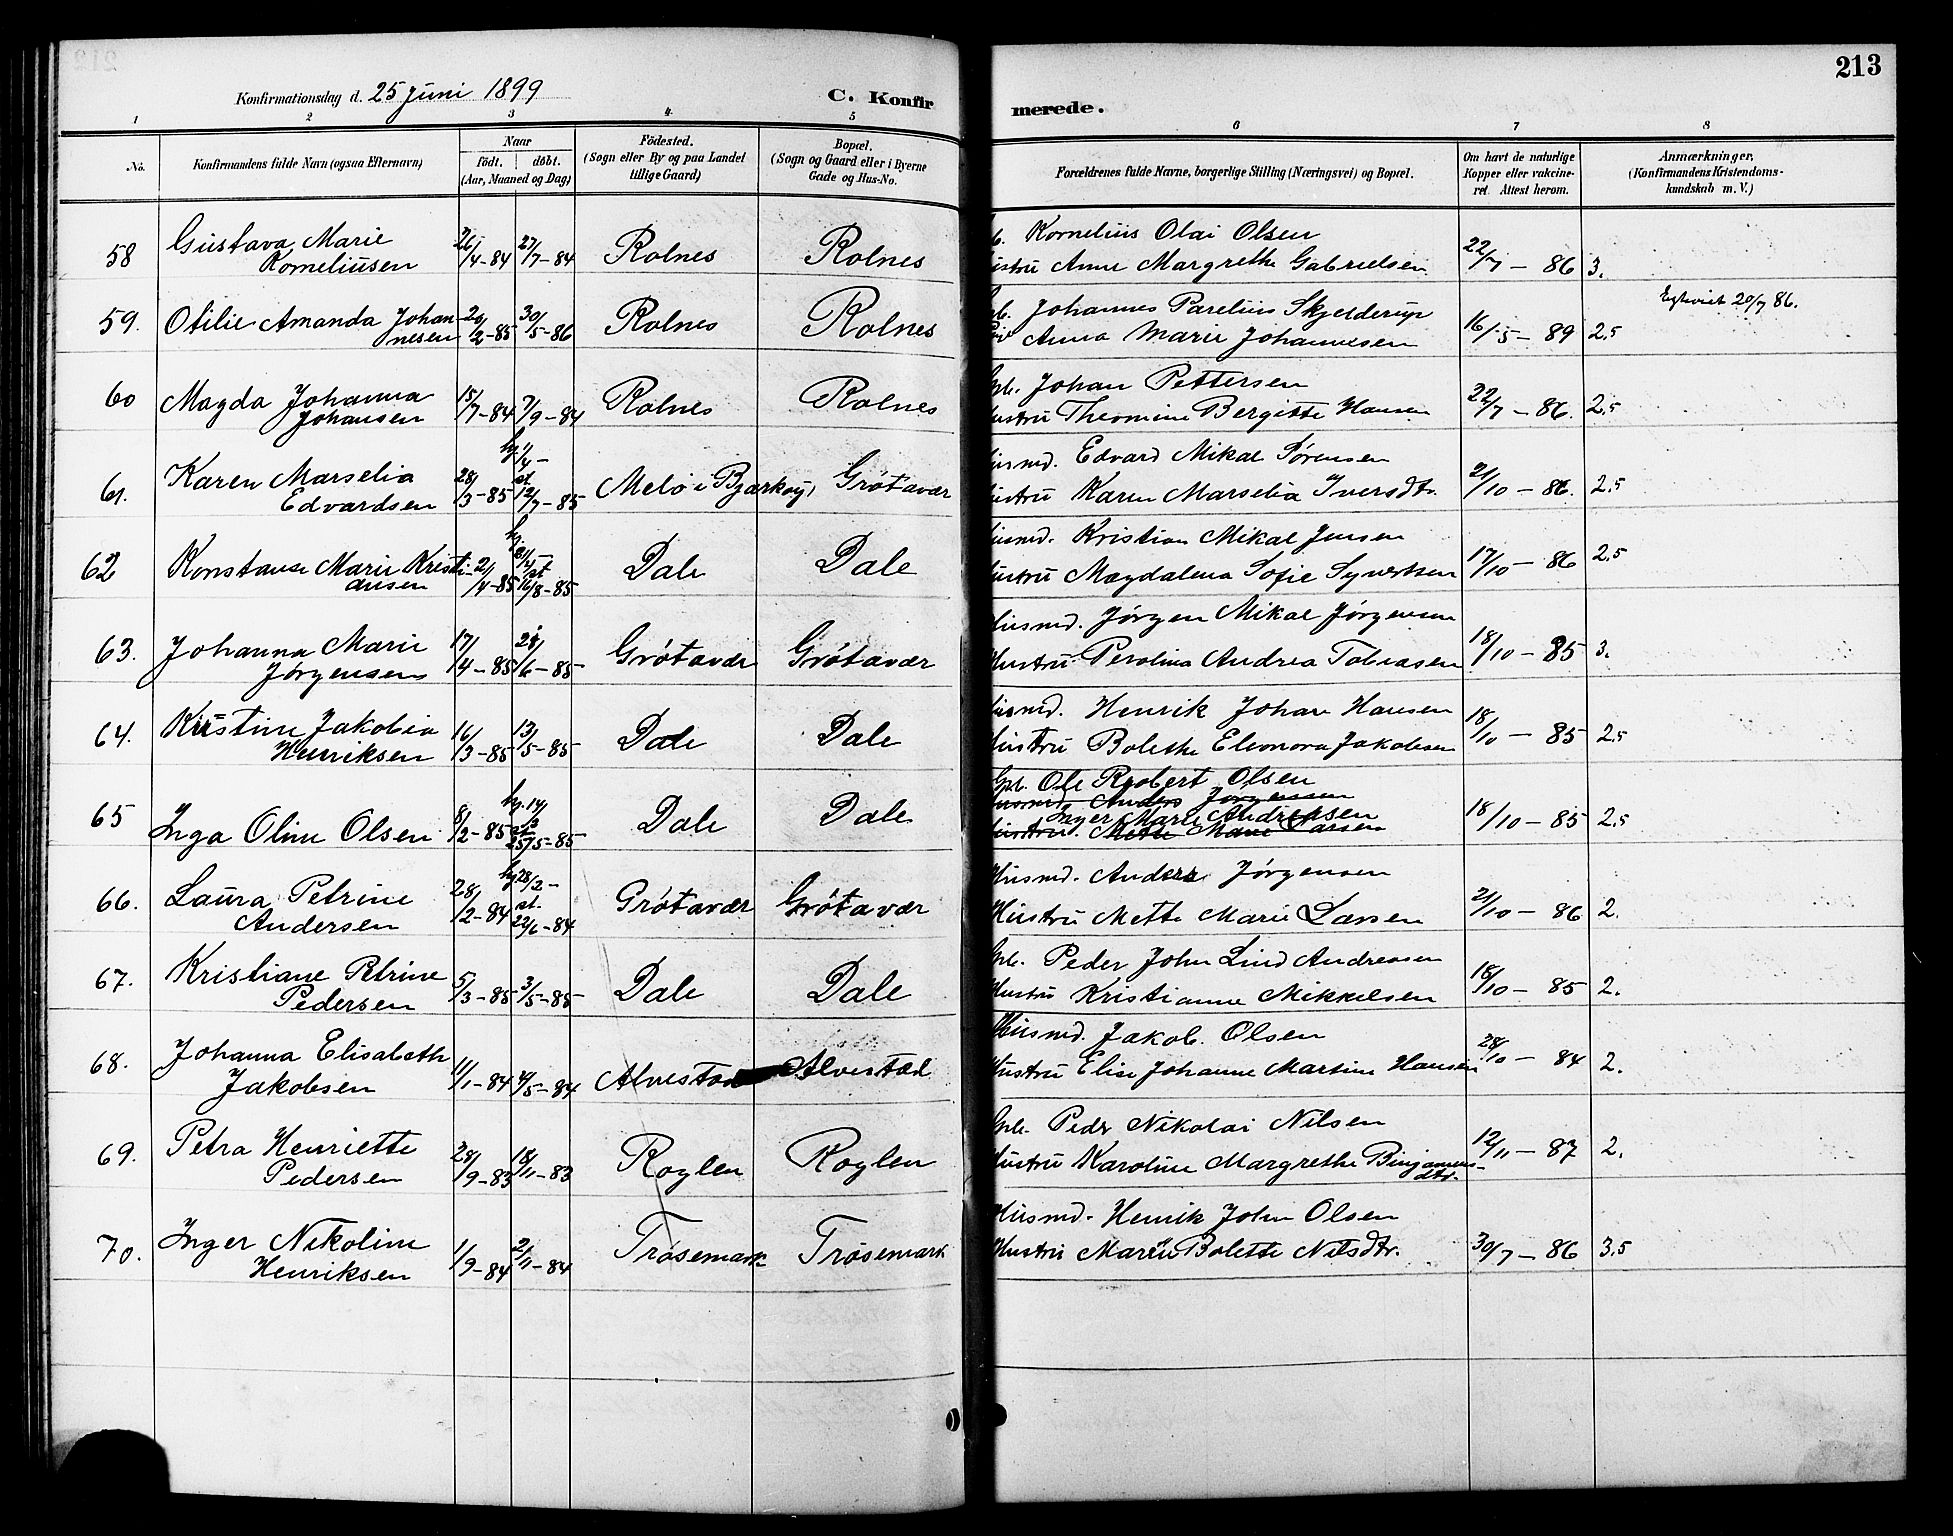 Konfirmationsdag d. 25 Juni 1899 C. Konfirmerede. 213
1 2 3 4 5 6 7 8
No. Konfirmandens fulde Navn (ogsaa Efternavn) Naar födt. döbt. (Aar, Maaned og Dag) Födested. (Sogn eller By og paa Landet tillige Gaard) Bopæl. (Sogn og Gaard eller i Byerne Gade og Hus-No. Forældrenes fulde Navne, borgerlige Stilling (Næringsvei) og Bopæl. Om havt de naturlige Kopper eller vakcineret. Attest herom. Anmærkninger, (Konfirmandens Kristendomskundskab m. V.)
Gustava Marie Kornelius Olai Olsen
58 Korneliusen 26/4-84 27/7-84 Rolnes Rolnes Hustru Anne Margrethe Gabrielsen 22/7-86 3.
Johannes Parelius Skjelderup Egteviet 20/7 86.
59. Otilie Amanda Johannesen 20/2-85 30/5-86 Rolnes Rolnes Anna Marie Johannesen 16/5-89 2,5
Gpb. Johan Pettersen
60 Magda Johanna Johansen 15/7-84 7/9-84 Rolnes Rolnes Hustru Theomine Bergitte Hansen 22/7-86. 2,5
Karen Marselia hj. 1/4- Husmd. Edvard Mikal Sørensen
61. Edvardsen 28/3-85 st. 12/7-85 Melö i Bjarköy, Grötavær Hustru Karen Marselia Iversdtr. 21/10-86. 2,5
hj. Husmd. Kristian Mikal Jensen
62 Konstanse Marie Kristiansen 2/4-85 21/4- st 16/8-85 Dale Dale Hustru Magdalena Sofie Syvertsen 17/10-86 2,5
Johanna Marie Husmd. Jörgen Mikal Jörgensen
63. Jörgensen 17/4-85 28/6-85 Grötavær Grötavær Hustru Perolina Andrea Tobiasen 18/10-85 3.
Kristine Jakobia Husmd. Henrik Johan Hansen
64. Henriksen 16/3-85 13/5-85 Dale Dale Hustru Bolethe Eleonora Jakobsen 18/10-85 2,5
Gpb. Ole Robert Olsen
hj. 14/3 Husmd. Anders Jörgensen
Inger Marie Andreasen
65 Inga Oline Olsen 8/2-85 st 25/5-85 Dale Dale Hustru Mette Marie Larsen 18/10-85 2,5
Laura Petrine hj 28/2- Husmd. Anders Jörgensen
66. Andersen 28/2-84 st. 22/6-84 Grötavær Grötavær Hustru Mette Marie Larsen 21/10-86 2.
Kristiane Petrine Gpb. Peder John Lind Andreasen
67. Pedersen 5/3-85 3/5-85 Dale Dale Hustru Kristianne Mikkelsen 18/10-85 2.
Johanna Elisabeth Husmd. Jakob. Olsen
68. Jakobsen 11/1-84 4/5-84 Alvestad Alvestad Hustru Elise Johanne Martine Hansen 28/10-84 2.
Petra Henriette Gpb. Peder Nikolai Nilsen
69. Pedersen 28/9-83 18/11-83 Roglen Roglen Hustru Karoline Margrethe Binjaminsdtr. 12/11-87 2.
Inger Nikoline Husmd. Henrik John Olsen
70. Henriksen 1/9-84 2/11-84 Trösemark Trösemark Hustru Maren Bolette Nilsdtr. 30/7-86 3,5